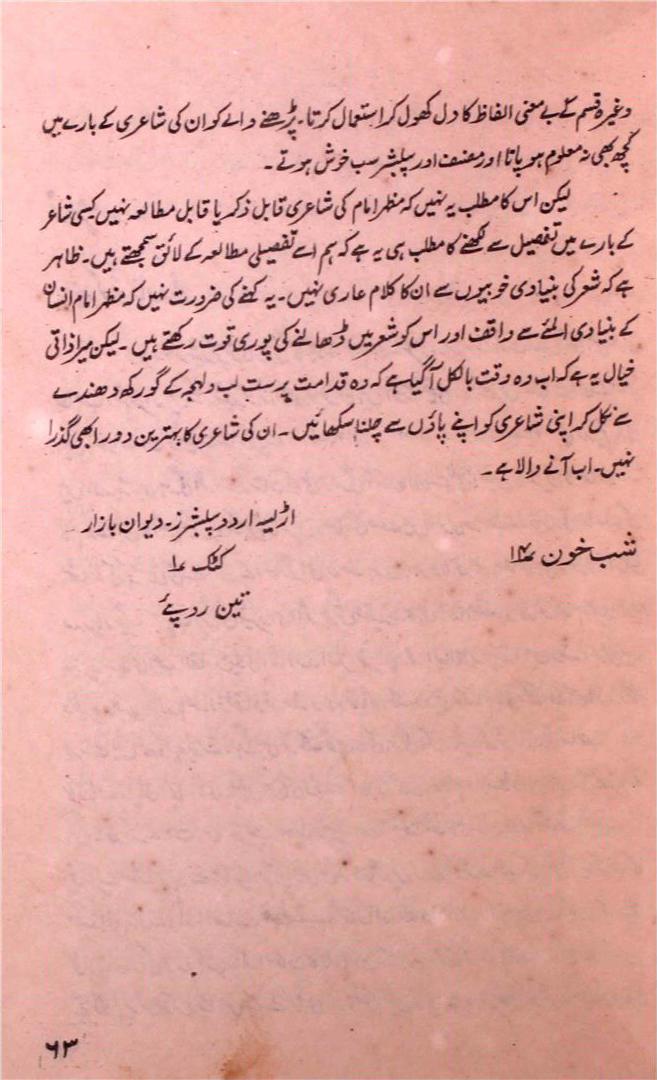 وغیرہ قسم کے بے معنی الفاظ کا دل کھول کر استعمال کرتا۔ پڑھنے والے کو ان کی شاعری کے بارے میں
کچھ بھی نہ معلوم ہو پاتا اور مصنف اور پبلشر سب خوش ہوتے۔
لیکن اس کا مطلب یہ نہیں کہ مظہر امام کی شاعری قابل ذکر یا قابل مطالعہ نہیں کیسی شاعر
کے بارے میں تفصیل سے لکھنے کا مطلب ہی یہ ہے کہ ہم اسے تفصیلی مطالعہ کے لائق سمجھتے ہیں۔ ظاہر
ہے کہ شعر کی بنیادی خوبیوں سے ان کا کلام عاری نہیں۔ یہ کہنے کی ضرورت نہیں کہ مظہر امام انسان
کے بنیادی المئے سے واقف اور اس کو شعر میں ڈھالنے کی پوری قوت رکھتے ہیں۔ لیکن میرا ذاتی
خیال یہ ہے کہ اب وہ وقت بالکل آگیا ہے کہ وہ قدامت پرست لب و لہجہ کے گورکھ دھندے
سے نکل کر اپنی شاعری کو اپنے پاؤں سے چلنا سکھائیں۔ ان کی شاعری کا بہترین دور ابھی گذرا
نہیں۔ اب آنے والا ہے۔
اڑلیسہ اردو پبلشرز۔ دیوان بازار
شب خون ۱۴؁
کٹک ۱؁
تین روپئے
۶۳